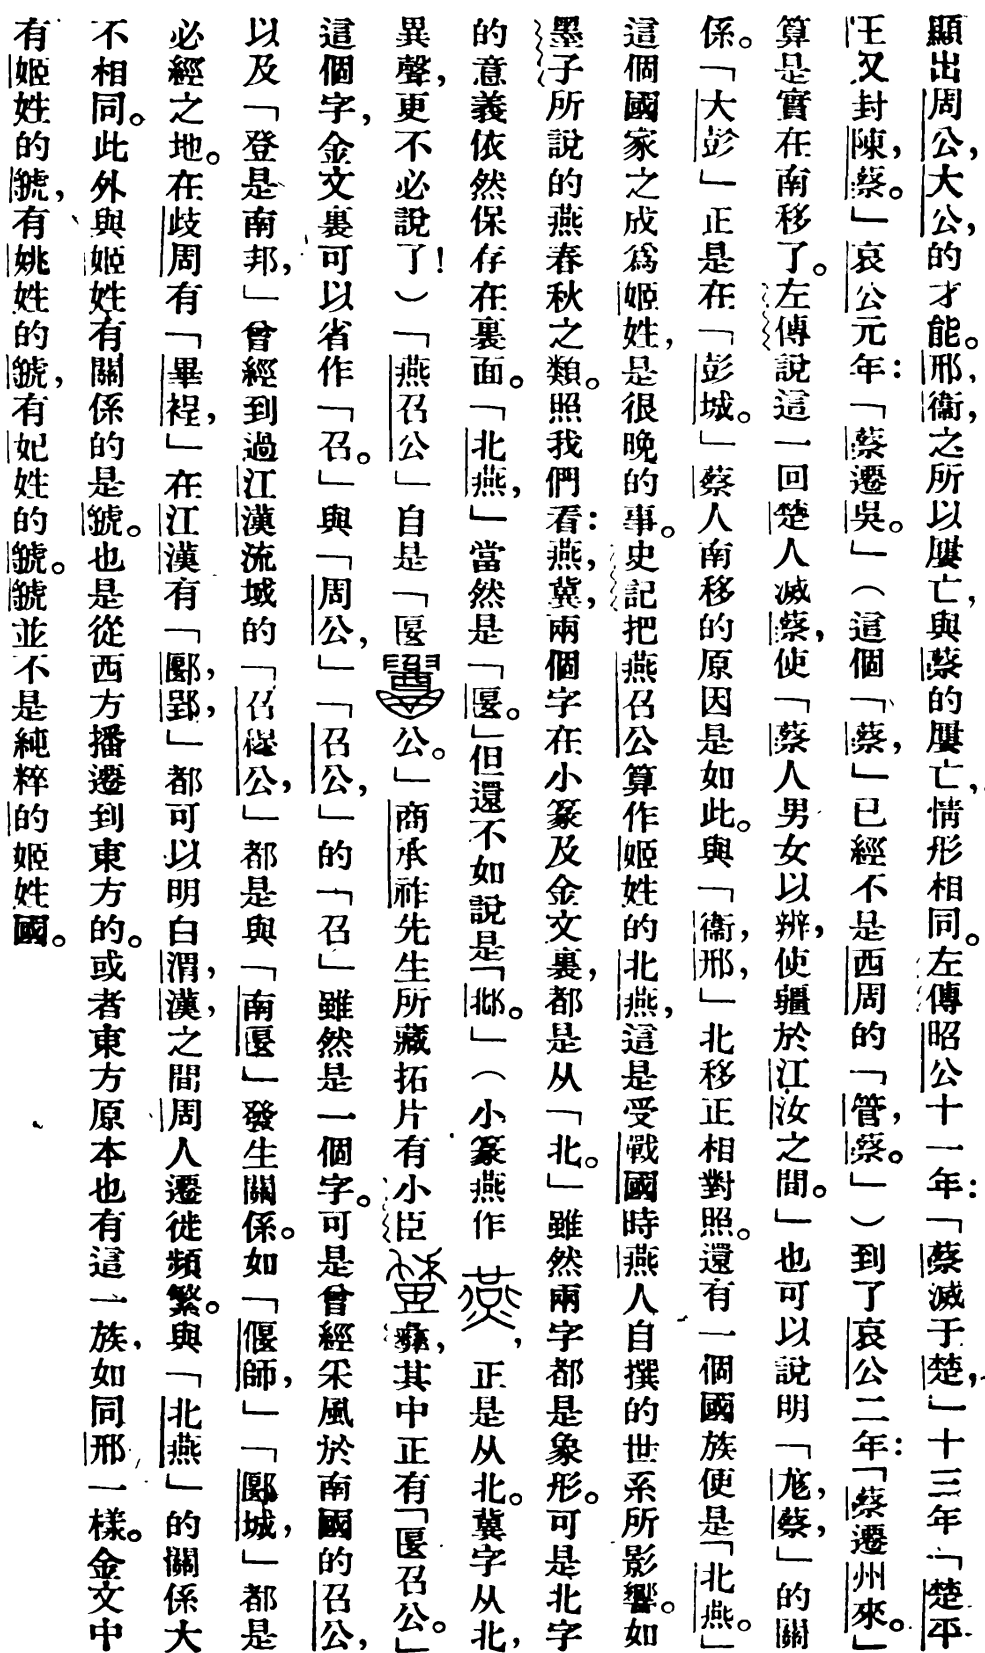 顯出周公，大公，的才能。邢，衞，之所以屢亡，與蔡的屢亡，情形相同。左傳昭公十一年：「蔡滅于楚，」十三年，「楚平
王又封陳，蔡。」哀公元年：「蔡遷吳。」（這個「蔡，」已經不是西周的「管，蔡。」）到了哀公二年：「蔡遷州來。」
算是實在南移了。左傳說這一回楚人滅蔡，使「蔡人男女以辨，使疆於江汝之間。」也可以說明「尨，蔡，」的關
係。「大彭」正是在「彭城。」蔡人南移的原因是如此。與「衞，邢，」北移正相對照。還有一個國族便是「北燕。」
這個國家之成爲姬姓，是很晚的事。史記把燕召公算作姬姓的北燕，這是受戰國時燕人自撰的世系所影響。如
墨子所說的燕春秋之類。照我們看：燕，冀，兩個字在小篆及金文裏，都是从「北。」雖然兩字都是象形。可是北字
的意義依然保存在裏面。「北燕，」當然是「匽。」但還不如說是「邶。」（小篆燕作，正是从北。冀字从北，
異聲，更不必說了！）「燕召公」自是「匽公。」商承祚先生所藏拓片有小臣彝，其中正有「匽召公。」
這個字，金文裏可以省作「召。」與「周公，」「召公，」的「召」雖然是一個字。可是曾經采風於南國的召公，
以及「登是南邦，」曾經到過江漢流域的「召穆公，」都是與「南匽」發生關係。如「偃師，」「郾城，」都是
必經之地。在歧周有「畢程，」在江漢有「郾，郢，」都可以明白渭，漢，之間周人遷徙頻繁。與「北燕」的關係大
不相同。此外與姬姓有關係的是虢。也是從西方播遷到東方的。或者東方原本也有這一族，如同邢一樣。金文中
有姬姓的虢，有姚姓的虢，有妃姓的虢。虢並不是純粹的姬姓國。